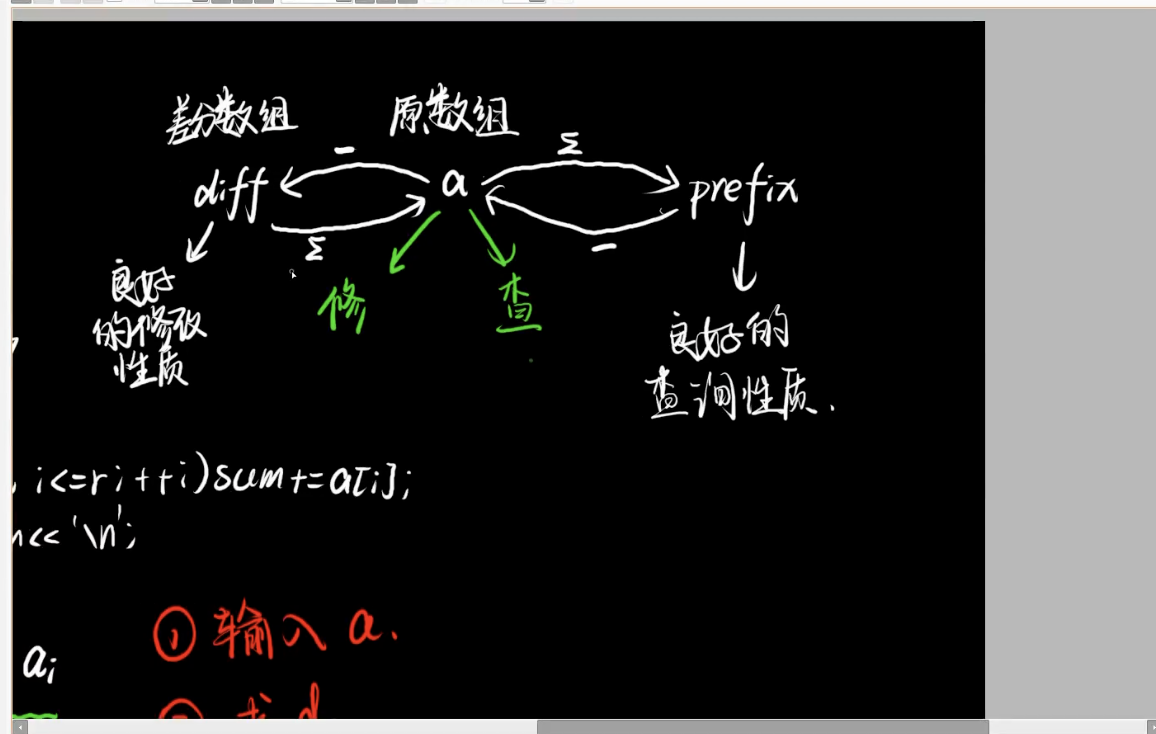 差分数组 原数组
- Σ
diff a prefix
Σ -
良好
的修改
性质
修 查
良好的
查询性质.
i<=r;++i)sum+=a[i];
<<'\n';
① 输入 a.
ai
② 求 d